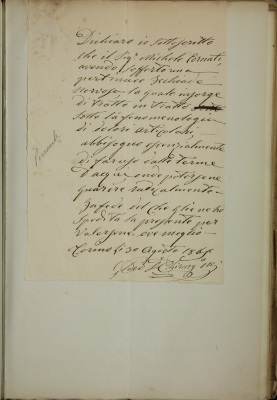 Dichiaro io sottoscritto
che il Sig.r Michele
avendo sofferto una
pertinace
nervosa la quale insorge
di tratto in tratto
sotto la fenomenologia
di dolori articolari,
abbisogna essenzialmente
di far uso delle Terme
d'acqui onde potersene
guarire radicalmente.
In fede del che gliene ho
spedita la presente per
valersene ove meglio
Torino li 30 Agosto